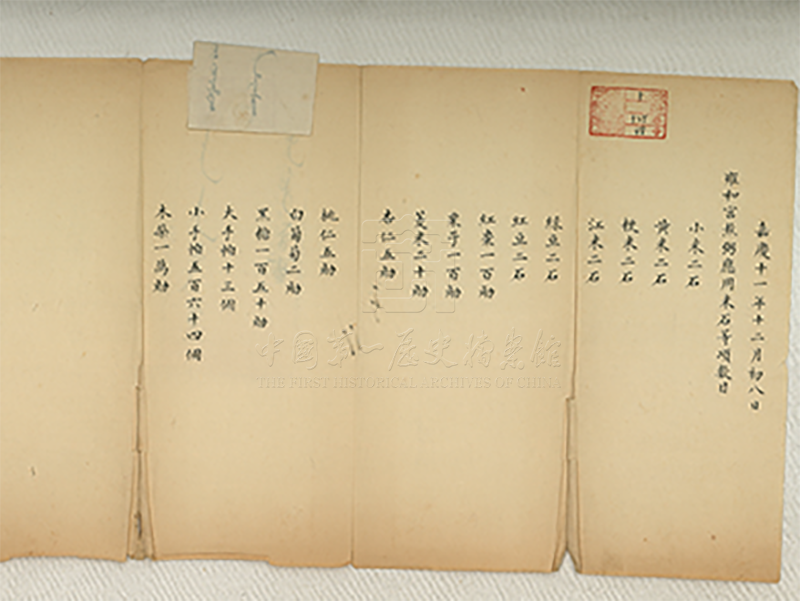 嘉慶十一年十二月初八日
雍和宮熬粥應用米石等項數目
小米二石
黃米二石
粳米二石
江米二石
綠豆二石
紅豆二石
紅棗一百觔
栗子一百觔
菱米二十觔
杏仁五觔
桃仁五觔
白葡萄二觔
黑糖一百五十觔
大手帕十三個
小手帕五百六十四個
木柴一萬觔
上
中國第一歷史檔案館
THE FIRST HISTORICAL ARCHIVES OF CHINA